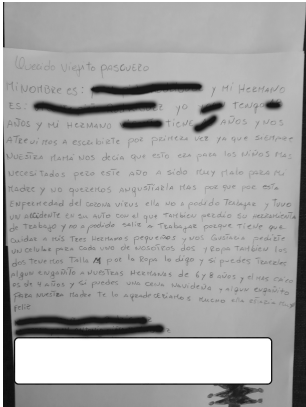 Querido viejito pascuero
Mi nombre es: y mi hermano
es: yo tengo
años y mi hermano tiene años y nos
atrevimos a escribirte por primera vez ya que siempre
nuestra mamá nos decia que esto era para los niños mas
necesitados pero este año a sido muy malo para mi
madre y no queremos angustiarla mas por que por esta
enfermedad del corona virus ella no a podido trabajar y tuvo
un accidente en su auto con el que tambien perdio su herramienta
de trabajo y no a podido salir a trabajar porque tiene que
cuidar a mis tres hermanos pequeños y nos gustaria pedirte
un celular para cada uno de nosotros dos y ropa tambien los
dos tenemos talla M por la ropa lo digo y si puedes traerles
algun engañito a nuestras hermanas de 6 y 8 años y el mas chico
es de 4 años y si puedes una cena navideña y algun engañito
para nuestra madre te lo agradeceriamos mucho ella estaria muy
feliz